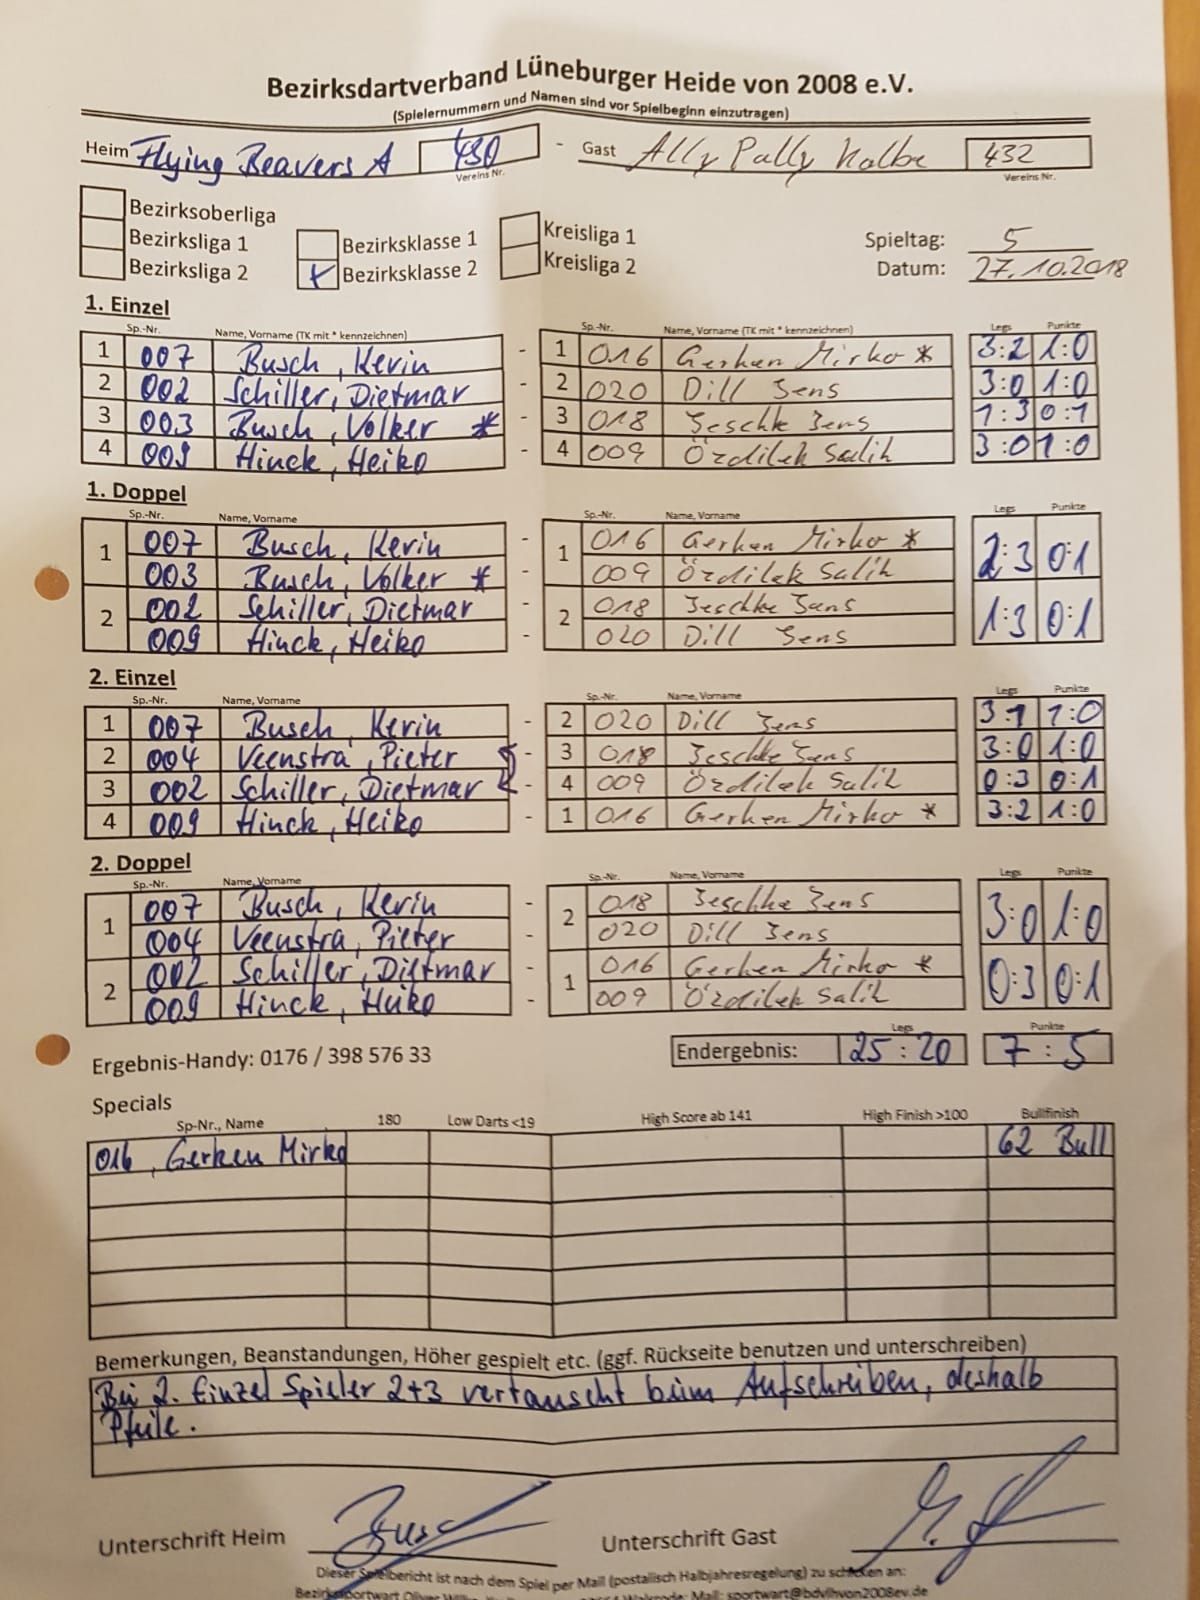 Bezirksdartverband Lüneburger Heide von 2008 e.V.
(Spielernummern und Namen sind vor Spielbeginn einzutragen)
Heim Flying Beavers A 430 - Gast Ally Pally Kalbe 432
Vereins Nr. Vereins Nr.
Bezirksoberliga
Bezirksliga 1 Bezirksklasse 1 Kreisliga 1 Spieltag: 5
Bezirksliga 2 X Bezirksklasse 2 Kreisliga 2 Datum: 27.10.2018
1. Einzel
Sp.-Nr. Name, Vorname (TK mit * kennzeichnen) Sp.-Nr. Name, Vorname (TK mit * kennzeichnen) Legs Punkte
1 007 Busch, Kevin - 1 016 Gerken Mirko * 3:2 1:0
2 002 Schiller, Dietmar - 2 020 Dill Jens 3:0 1:0
3 003 Busch, Volker * - 3 018 Jeschke Jens 1:3 0:1
4 009 Hinck, Heiko - 4 009 Özdilek Salih 3:0 1:0
1. Doppel
Sp.-Nr. Name, Vorname Sp.-Nr. Name, Vorname Legs Punkte
1 007 Busch, Kevin - 1 016 Gerken Mirko * 2:3 0:1
003 Busch, Volker * - 009 Özdilek Salih
2 002 Schiller, Dietmar - 2 018 Jeschke Jens 1:3 0:1
009 Hinck, Heiko - 020 Dill Jens
2. Einzel
Sp.-Nr. Name, Vorname Sp.-Nr. Name, Vorname Legs Punkte
1 007 Busch, Kevin - 2 020 Dill Jens 3:1 1:0
2 004 Veenstra, Pieter - 3 018 Jeschke Jens 3:0 1:0
3 002 Schiller, Dietmar - 4 009 Özdilek Salih 0:3 0:1
4 009 Hinck, Heiko - 1 016 Gerken Mirko * 3:2 1:0
2. Doppel
Sp.-Nr. Name, Vorname Sp.-Nr. Name, Vorname Legs Punkte
1 007 Busch, Kevin - 2 018 Jeschke Jens 3:0 1:0
004 Veenstra, Pieter - 020 Dill Jens
2 002 Schiller, Dietmar - 1 016 Gerken Mirko * 0:3 0:1
009 Hinck, Heiko - 009 Özdilek Salih
Legs Punkte
Ergebnis-Handy: 0176 / 398 576 33 Endergebnis: 25 : 20 7 : 5
Specials
Sp-Nr., Name 180 Low Darts <19 High Score ab 141 High Finish >100 Bullfinish
016, Gerken Mirko 62 Bull
Bemerkungen, Beanstandungen, Höher gespielt etc. (ggf. Rückseite benutzen und unterschreiben)
Bei 2. Einzel Spieler 2+3 vertauscht beim Aufschreiben, deshalb
Pfeile.
Unterschrift Heim Busch Unterschrift Gast
Dieser Spielbericht ist nach dem Spiel per Mail (postalisch Halbjahresregelung) zu schicken an:
Bezirkssportwart Mail: sportwart@bdvlhvon2008ev.de